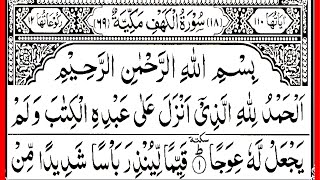 اٰیَاتُهَا ١١٠ (١٨) سُوْرَةُ الْكَهْفِ مَكِّيَّةٌ (٦٩) رُكُوْعَاتُهَا ١٢
بِسْمِ اللهِ الرَّحْمٰنِ الرَّحِيْمِ
اَلْحَمْدُ لِلّٰهِ الَّذِيْۤ اَنْزَلَ عَلٰى عَبْدِهِ الْكِتٰبَ وَلَمْ
يَجْعَلْ لَّهٗ عِوَجًا ٚ ﴿١﴾ سكتة قَيِّمًا لِّيُنْذِرَ بَاْسًا شَدِيْدًا مِّنْ